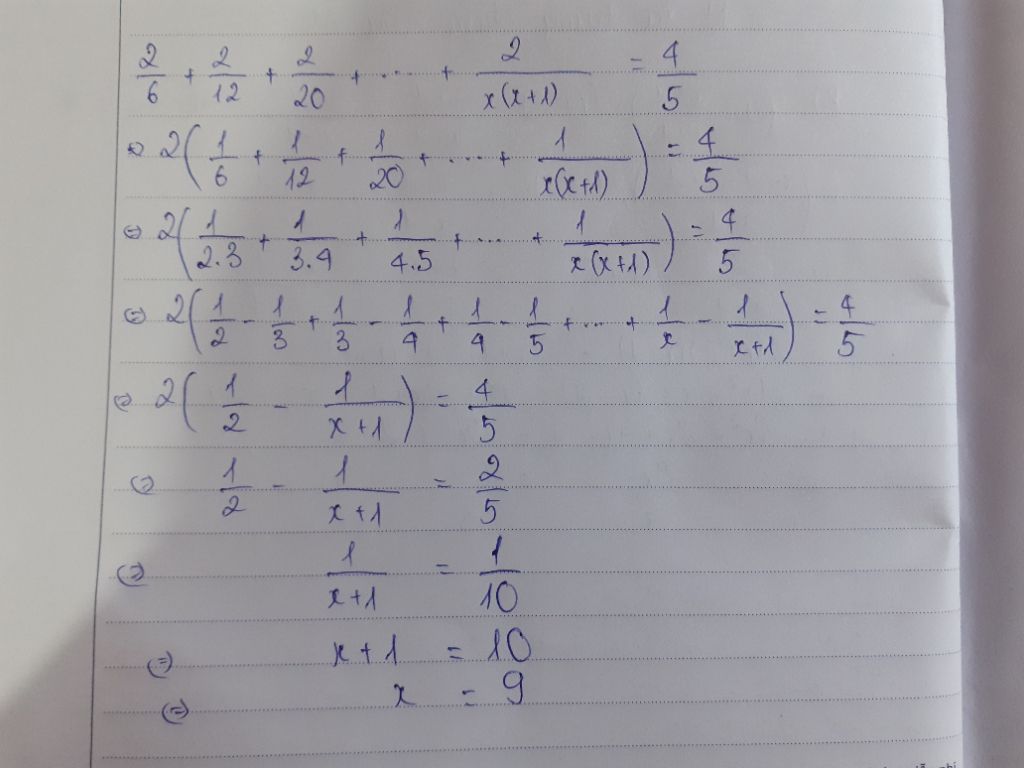 2/6 + 2/12 + 2/20 + ... + 2/x(x+1) = 4/5
⇔ 2(1/6 + 1/12 + 1/20 + ... + 1/x(x+1)) = 4/5
⇔ 2(1/2.3 + 1/3.4 + 1/4.5 + ... + 1/x(x+1)) = 4/5
⇔ 2(1/2 - 1/3 + 1/3 - 1/4 + 1/4 - 1/5 + ... + 1/x - 1/x+1) = 4/5
⇔ 2(1/2 - 1/x+1) = 4/5
⇔ 1/2 - 1/x+1 = 2/5
⇔ 1/x+1 = 1/10
⇔ x+1 = 10
⇔ x = 9